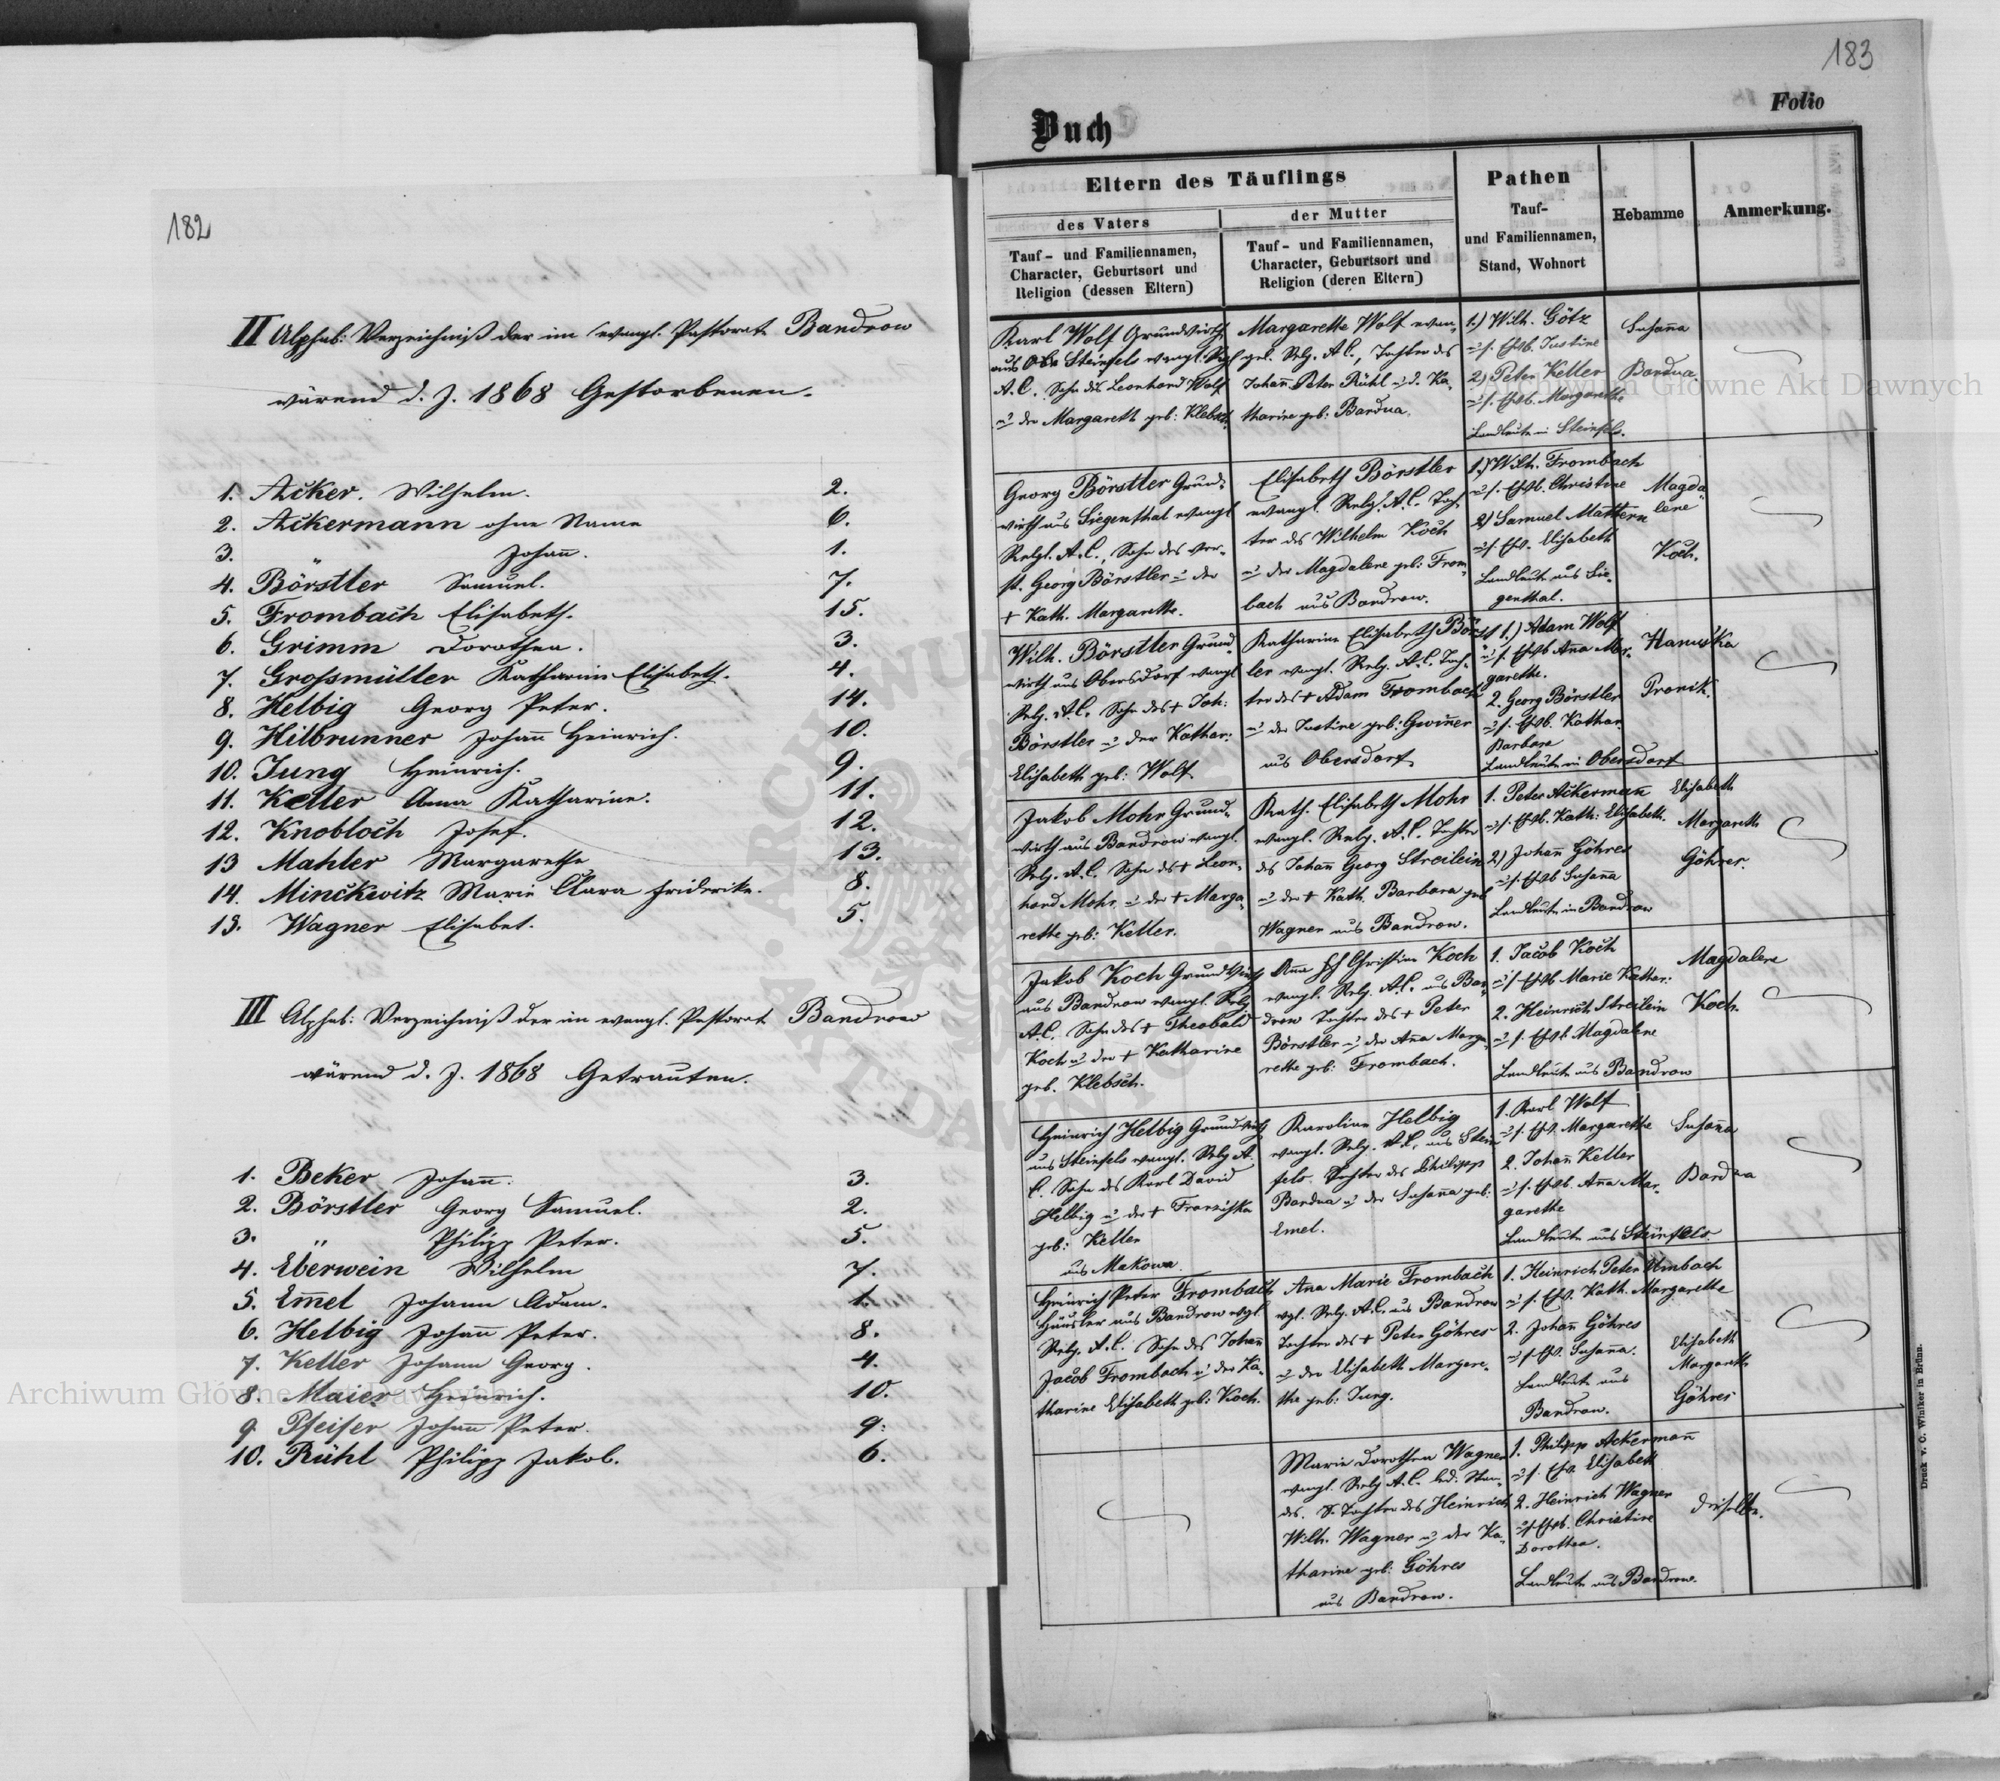 182
II Alphab: Verzeichniß der im evangl. Pastorat Bandrow
wärend d. J. 1868 Gestorbenen.
1. Acker. Wilhelm. 2.
2. Ackermann ohne Name 6.
3. Johañ. 1.
4. Börstler Samuel. 7.
5. Frombach Elisabeth. 15.
6. Grimm Dorothea. 3.
7. Grossmüller Katharina Elisabeth. 4.
8. Helbig Georg Peter. 14.
9. Hilbrunner Johañ Heinrich. 10.
10. Jung Heinrich. 9.
11. Keller Anna Katharine. 11.
12. Knobloch Josef. 12.
13 Mahler Margarethe 13.
14. Minckwitz Marie Clara Friderike. 8.
15. Wagner Elisabet. 5.
III Alphab: Verzeichniß der im evangl. Pastorat Bandrow
wärend d. J. 1868 Getrauten.
1. Beker Johañ. 3.
2. Börstler Georg Samuel. 2.
3. " Philipp Peter. 5.
4. Eberwein Wilhelm 7.
5. Em̃el Johann Adam. 1.
6. Helbig Johañ Peter. 8.
7. Keller Johann Georg. 4.
8. Maier Heinrich. 10.
9. Pfeifer Johañ Peter. 9.
10. Rühl Philipp Jakob. 6.
183
Folio
Buch
Eltern des Täuflings
des Vaters
Tauf- und Familiennamen,
Character, Geburtsort und
Religion (dessen Eltern)
der Mutter
Tauf- und Familiennamen,
Character, Geburtsort und
Religion (deren Eltern)
Pathen
Tauf-
und Familiennamen,
Stand, Wohnort
Hebamme
Anmerkung.
Karl Wolf Grundwirth
aus Steinfels evangl. Relg
A.C. Sohn des Leonhard Wolf
u der Margareth geb: Klebsch.
Margarette Wolf evan-
gel. Relg. A.C., Tochter des
Johañ Peter Rühl u d. Ka-
tharine geb: Bardua.
1.) Wilh. Götz
u s. Ehwb. Justine
2) Peter Keller
u s. Ehwb. Margarethe
Landleute in Steinfels.
Susaña
Bardua
Georg Börstler Grund-
wirth aus Siegenthal evangl
Relgl. A.C., Sohn des ver-
st. Georg Börstler u der
+ Kath. Margarette.
Elisabeth Börstler
evangl. Relg. A.C. Toch
ter des Wilhelm Koch
u der Magdalene geb: From-
bach aus Bandrow.
1.) Wilh. Frombach
u s. Ehwb. Christine
2) Samuel Mattern
u s. Ehw. Elisabeth
Landleute aus Sie-
genthal.
Magda-
lene
Koch.
Wilh. Börstler Grund
wirth aus Obersdorf evangl
Relg. A.C. Sohn des + Joh:
Börstler u der Kathar:
Elisabeth geb: Wolf
Katharine Elisabeth Börst
ler evangl. Relg. A.C. Toch-
ter des + Adam Frombach
u der Justine geb: Gwiñer
aus Obersdorf
1.) Adam Wolf
u s. Ehwb Aña Mar-
garette.
2. Georg Börstler
u s. Ehwb. Kathar.
Barbara
Landleute in Obersdorf
Hanuśka
Pronik.
Jakob Mohr Grund-
wirth aus Bandrow evangl.
Relg. A.C. Sohn des + Leon-
hard Mohr u der + Marga-
rette geb: Keller.
Kath. Elisabeth Mohr
evangl. Relg. A.C. Tochter
des Johañ Georg Streilein
u der + Kath. Barbara geb
Wagner aus Bandrow.
1. Peter Ackerman
u s. Ehwb. Kath: Elisabeth.
2) Johañ Göhres
u s. Ehwb Susaña
Landleute in Bandrow
Elisabeth
Margareth
Göhrer.
Jakob Koch Grundwirth
aus Bandrow evangl. Relg
A.C. Sohn des + Theobald
Koch u der + Katharine
geb. Klebsch.
Aña Christine Koch
evangl. Relg. A.C. aus Ban-
drow Tochter des + Peter
Börstler u der Aña Marga-
rethe geb: Frombach.
1. Jacob Koch
u s Ehwb Marie Kathar:
2. Heinrich Streilein
u s. Ehwb. Magdalene
Landleute aus Bandrow
Magdalene
Koch.
Heinrich Helbig Grundwirth
aus Steinfels evangl. Relg A.
C. Sohn des Karl David
Helbig u der + Franziska
geb: Keller
aus Makowa.
Karoline Helbig
evangl. Relg. A.C. aus Stein
fels. Tochter des Philipp
Bardua u der Susaña geb:
Emel.
1. Karl Wolf
u s. Ehw. Margarethe
2. Johañ Keller
u s. Ehwb. Aña Mar-
garethe
Landleute aus Steinfels.
Susaña
Bardua
Heinrich Peter Frombach
Häusler aus Bandrow evgl
Relg. A.C. Sohn des Johañ
Jacob Frombach u der Ka-
tharine Elisabeth geb: Koch.
Ana Marie Frombach
evgl. Relg. A.C. aus Bandrow
Tochter des + Peter Göhres
u der Elisabeth Margare-
the geb: Jung.
1. Heinrich Peter Umbach
u s. Ehw. Kath. Margarette
2. Johañ Göhres
u s. Ehw. Susaña.
Landleute aus
Bandrow.
Elisabeth
Margareth
Göhres
Marie Dorothea Wagner
evangl. Relg A.C. led: Stan-
des. Tochter des Heinrich
Wilh. Wagner u der Ka-
tharine geb: Göhres
aus Bandrow.
1. Philipp Ackermañ
u s. Ehw. Elisabeth
2. Heinrich Wagner
u s Ehwb. Christine
Dorothea.
Landleute aus Bandrow.
dieselbe.
Druck v. C. Winiker in Brünn.
Archiwum Główne Akt Dawnych
Archiwum Główne Akt Dawnych